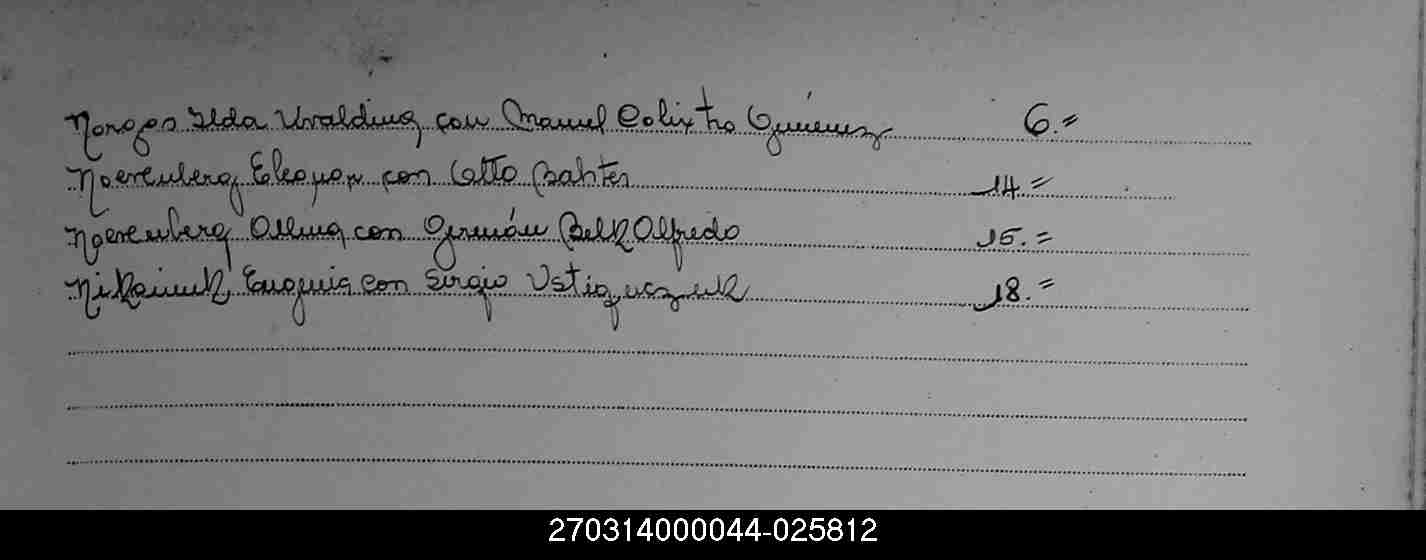 Noroso Ilda Uvaldina con Manuel Calixtro Gimenez 6.=
Noerenberg Eleonor con Otto Bahter 14.=
Noerenberg Allina con Germán Belk Alfredo 15.=
Nikaiuk Eugenia con Sergio 18.=
270314000044-025812